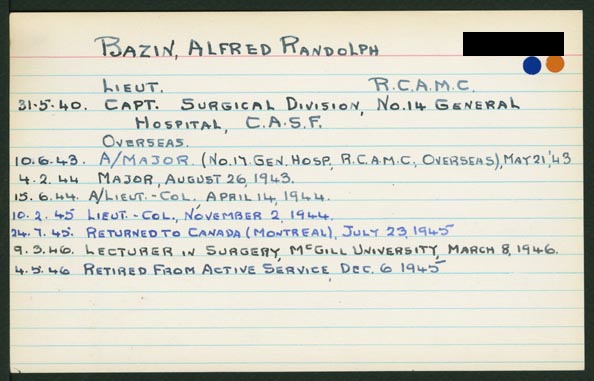 BAZIN, ALFRED RANDOLPH
LIEUT. R.C.A.M.C.
31·5·40. CAPT. SURGICAL DIVISION, No.14 GENERAL
HOSPITAL, C.A.S.F.
OVERSEAS.
10.6.43. A/MAJOR (No.17. GEN. HOSP, R.C.A.M.C, OVERSEAS), MAY 21, '43
4.2.44 MAJOR, AUGUST 26, 1943.
15.6.44. A/LIEUT.-COL., APRIL 14, 1944.
10.2.45 LIEUT.-COL., NOVEMBER 2, 1944.
24.7.45. RETURNED TO CANADA (MONTREAL), JULY 23, 1945
9.3.46. LECTURER IN SURGERY, McGILL UNIVERSITY, MARCH 8, 1946.
4.5.46 RETIRED FROM ACTIVE SERVICE, DEC. 6 1945